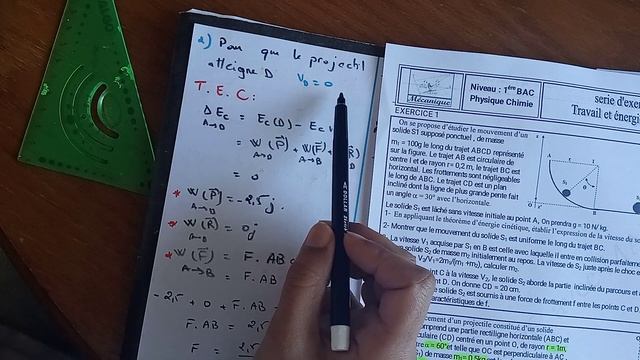 2) Pour que le projectil
atteigne D
V_D = 0
T.E.C:
ΔEc = Ec(D) - Ec
A→D
= W(P) + W(F) + R)
A→D A→B D
= 0
* W(P) = -2,5 j.
A→D
* W(R) = 0 j
A→D
* W(F) = F. AB
A→B = F. AB
-2,5 + 0 + F. AB
F. AB = 2,5
F = 2,5
Mécanique
Niveau : 1ère BAC
Physique Chimie
serie d'exer
Travail et énergi
EXERCICE 1
On se propose d'étudier le mouvement d'un
solide S1 supposé ponctuel, de masse
m₁ = 100g le long du trajet ABCD représenté
sur la figure. Le trajet AB est circulaire de
centre I et de rayon r=0,2 m, le trajet BC est
horizontal. Les frottements sont négligeables
le long de ABC. Le trajet CD est un plan
incliné dont la ligne de plus grande pente fait
un angle α = 30° avec l'horizontale.
Le solide S₁ est lâché sans vitesse initiale au point A. On prendra g = 10 N/kg.
1- En appliquant le théorème de l'énergie cinétique, établir l'expression de la vitesse du s
2- Montrer que le mouvement du solide S₁ est uniforme le long du trajet BC.
La vitesse V₁ acquise par S₁ en B est celle avec laquelle il entre en collision parfaitemen
solide S₂ de masse m₂ initialement au repos. La vitesse de S₂ juste après le choc e
V₂/V₁=2m₁/(m₁ +m₂), calculer m₂.
int C à la vitesse V₂, le solide S₂ aborde la partie inclinée du parcours et
nt D. On donne CD = 20 cm.
le solide S₂ est soumis à une force de frottement f entre les points C et D
ractéristiques de f.
mouvement d'un projectile constitué d'un solide
comprend une partie rectiligne horizontale (ABC) et
circulaire (CD) centrée en un point O, de rayon r= 1m,
α= 60° et telle que OC est perpendiculaire à AC
) de masse m₁= 0,5kg